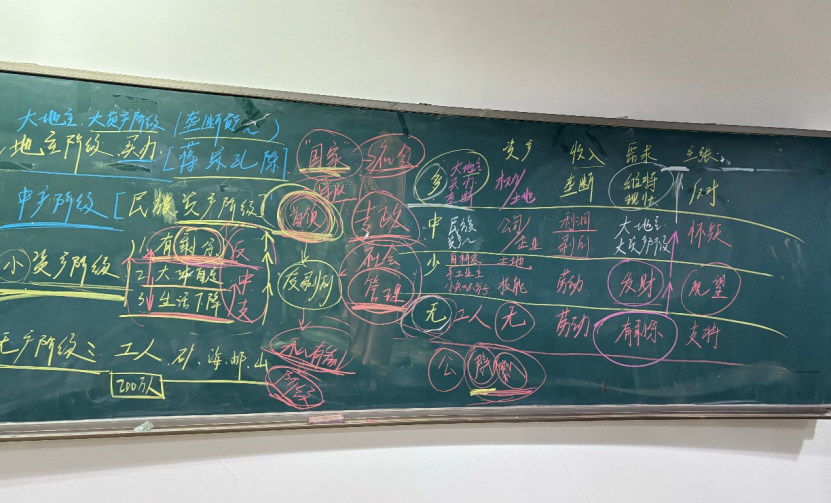 大地主、大资产阶级（垄断
地主阶级 买办 [蒋宋孔陈]
中产阶级 [民族资产阶级]
小资产阶级
1. 有剩余 反
2. 大体自足 中
3. 生活下降 支
无产阶级：工人 矿、海、邮、山
200万人
"国家"
社会
管理
反剥削
资产 收入 需求 主张
大地主 买办 权力/土地 垄断 维持现状 反对
中 民族 公司/企业 利润 大地主 大资产阶级 怀疑
小 自耕农 手工业主 土地 技能 劳动 发财 观望
无 工人 无 劳动 有剩余 支持
公